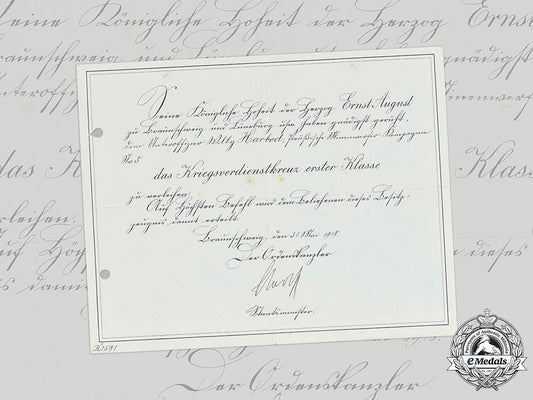 Seine Königliche Hoheit der Herzog Ernst August
zu Braunschweig und Lüneburg usw. haben gnädigst geruht,
dem Unteroffizier Willy Harbod, Preußische Minenwerfer Kompagnie
No 5
das Kriegsverdienstkreuz erster Klasse
zu verleihen.
Auf Höchsten Befehl wird dem Beliehenen dieses Besitz-
zeugnis damit erteilt.
Braunschweig, den 1918.
Der Ordenskanzler
Staatsminister.
K1591
eMedals